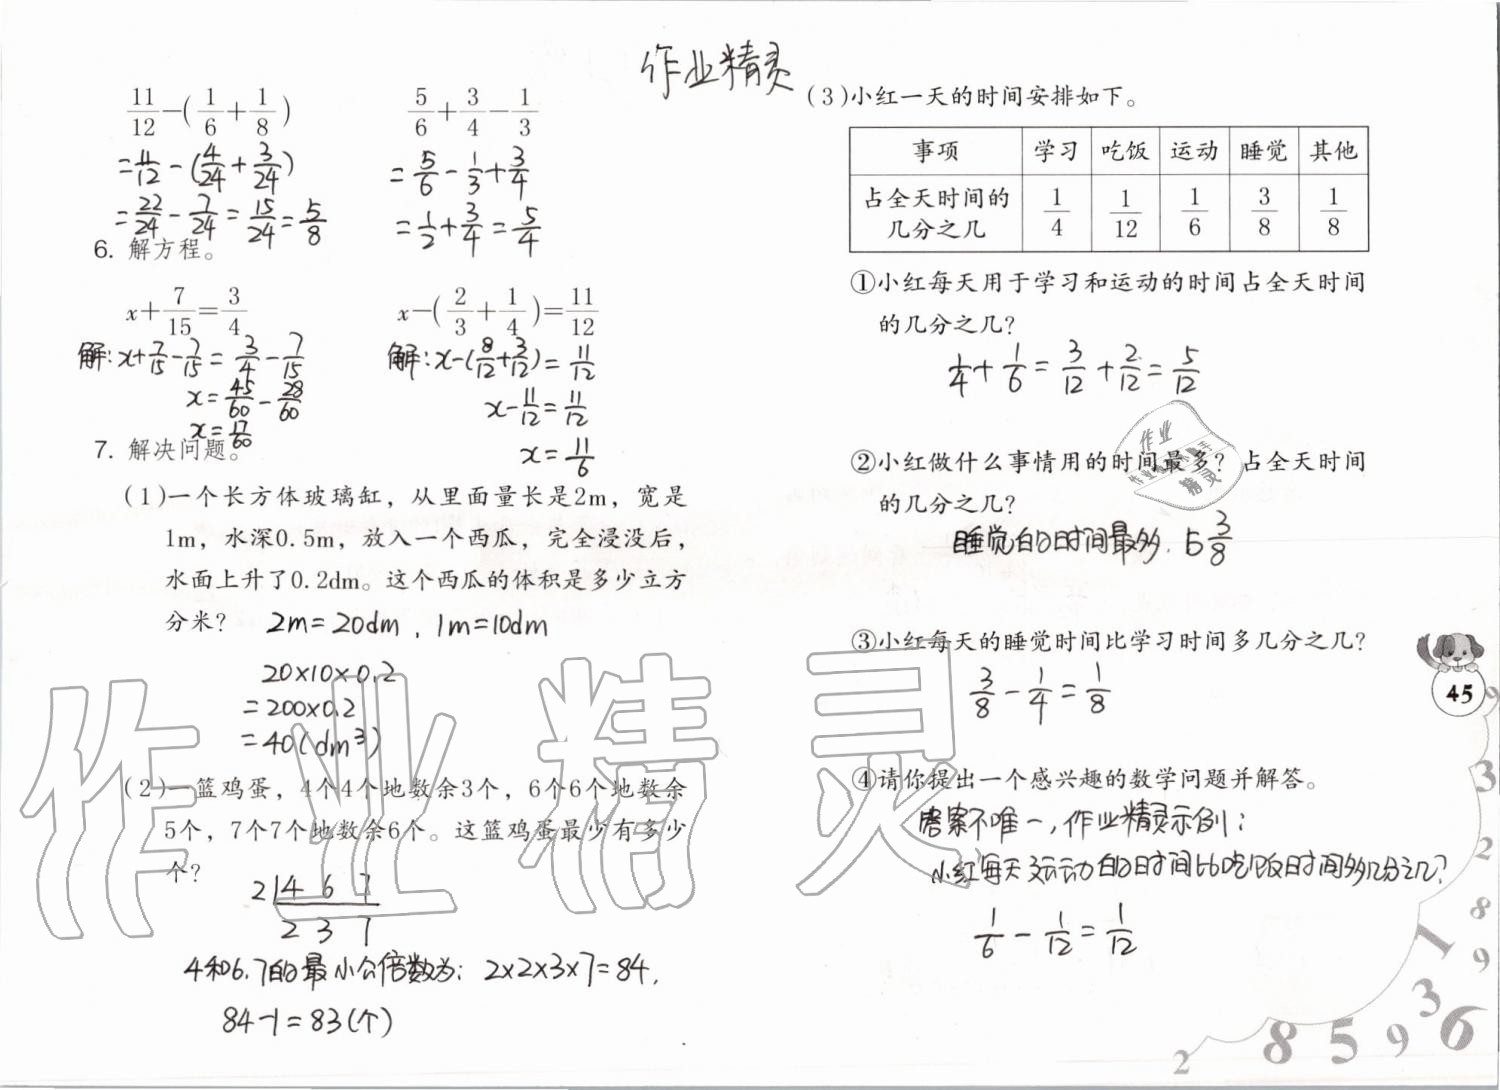 作业精灵
11/12-(1/6+1/8)
=11/12-(4/24+3/24)
=22/24-7/24=15/24=5/8
5/6+3/4-1/3
=5/6-1/3+3/4
=1/2+3/4=5/4
6. 解方程。
x+7/15=3/4
解:x+7/15-7/15=3/4-7/15
x=45/60-28/60
x=17/60
x-(2/3+1/4)=11/12
解:x-(8/12+3/12)=11/12
x-11/12=11/12
x=11/6
7. 解决问题。
(1)一个长方体玻璃缸，从里面量长是2m，宽是
1m，水深0.5m，放入一个西瓜，完全浸没后，
水面上升了0.2dm。这个西瓜的体积是多少立方
分米？ 2m=20dm，1m=10dm
20×10×0.2
=200×0.2
=40(dm³)
(2)一篮鸡蛋，4个4个地数余3个，6个6个地数余
5个，7个7个地数余6个。这篮鸡蛋最少有多少
个？
2|4 6 7
2 3 7
4和6.7的最小公倍数为：2×2×3×7=84，
84-1=83(个)
(3)小红一天的时间安排如下。
事项 学习 吃饭 运动 睡觉 其他
占全天时间的几分之几 1/4 1/12 1/6 3/8 1/8
①小红每天用于学习和运动的时间占全天时间
的几分之几？
1/4+1/6=3/12+2/12=5/12
②小红做什么事情用的时间最多？占全天时间
的几分之几？
睡觉的时间最多. 占3/8
③小红每天的睡觉时间比学习时间多几分之几？
3/8-1/4=1/8
④请你提出一个感兴趣的数学问题并解答。
答案不唯一，作业精灵示例：
小红每天运动的时间比吃饭时间多几分之几？
1/6-1/12=1/12
45
作业精灵
作业
精灵
9
3
2
8
9
1
3
6
9
5
8
2